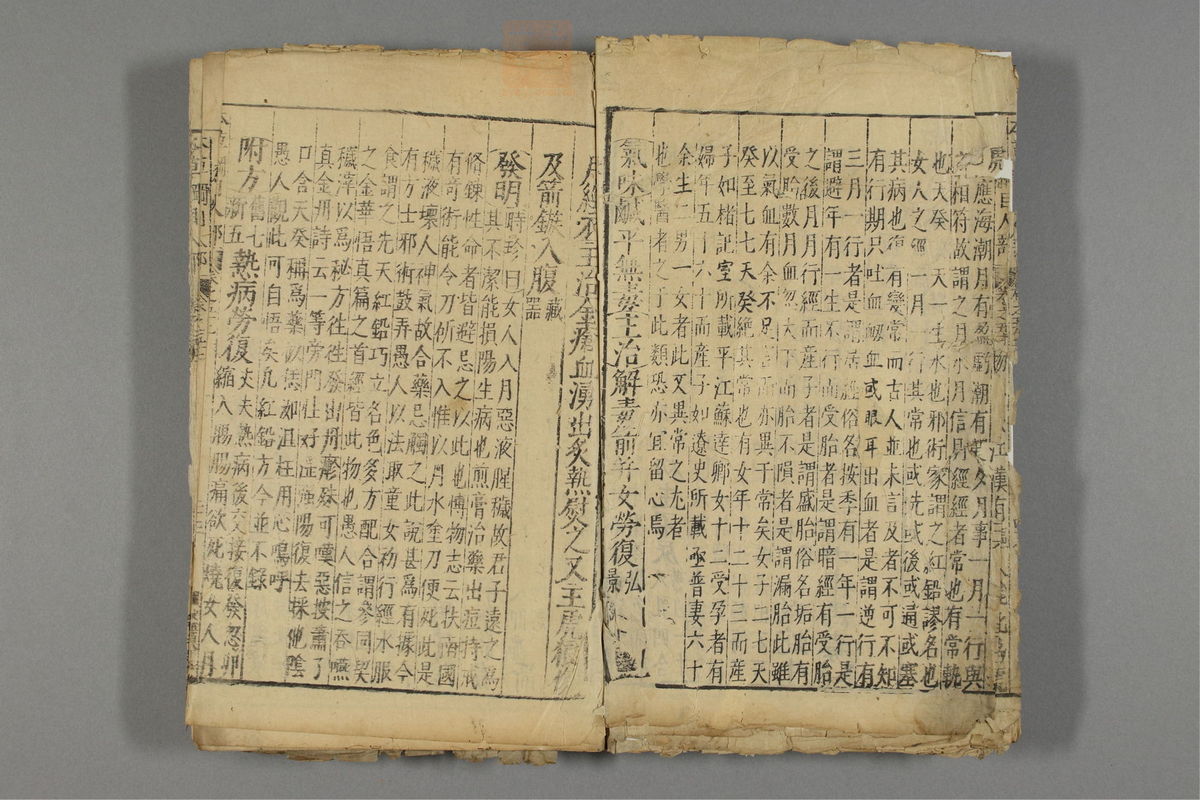 應海潮月有盈虧潮有朝夕月事一月一行與
之相符故謂之月水月信月經經者常也有常軌
也天癸 天一生水也邪術家謂之紅鉛謬名也
女人之經一月一行其常也或先或後或通或塞
其病也復有變常而古人並未言及者不可不知
有行期只吐血衂血或眼耳出血者是謂逆行有
三月一行者是謂居經俗名按季有一年一行是
謂避年有一生不行而受胎者是謂暗經有受胎
之後月月行經而產子者是謂盛胎俗名垢胎有
受胎數月血忽大下而胎不隕者是謂漏胎此雖
以氣血有余不足言而亦異于常矣女子二七天
癸至七七天癸絕其常也有女年十二十三而產
子如褚記室所載平江蘇達卿女十二受孕者有
婦年五十六十而產子如遼史所載亟普妻六十
余生二男一女者此又異常之尤者
也學醫者之于此類恐亦宜留心焉
氣味鹹平無毒主治解毒箭并女勞復弘景
月經衣主治金瘡血湧出炙熱熨之又主虎狼
及箭鏃入腹藏器
發明時珍曰女人入月惡液腥穢故君子遠之為
其不潔能損陽生病也煎膏治藥出痘持戒
修鍊性命者皆避忌之以此也博物志云扶南國
有奇術能令刀斫不入惟以月水塗刀便死此是
穢液壞人神氣故合藥忌觸之此說甚為有據今
有方士邪術鼓弄愚人以法取童女初行經水服
食謂之先天紅鉛巧立名色多方配合謂參同契
之金華悟真篇之首經皆此物也愚人信之吞嚥
穢滓以為秘方往往發出丹疹殊可嘆惡按蕭了
真金丹詩云一等旁門性好淫強陽復去採他陰
口合天癸稱為藥似恁如沮枉用心嗚呼
愚人觀此可自悟矣凡紅鉛方今並不錄
附方舊七新五熱病勞復丈夫熱病後交接復發忽卵
縮入腸腸痛欲死燒女人月